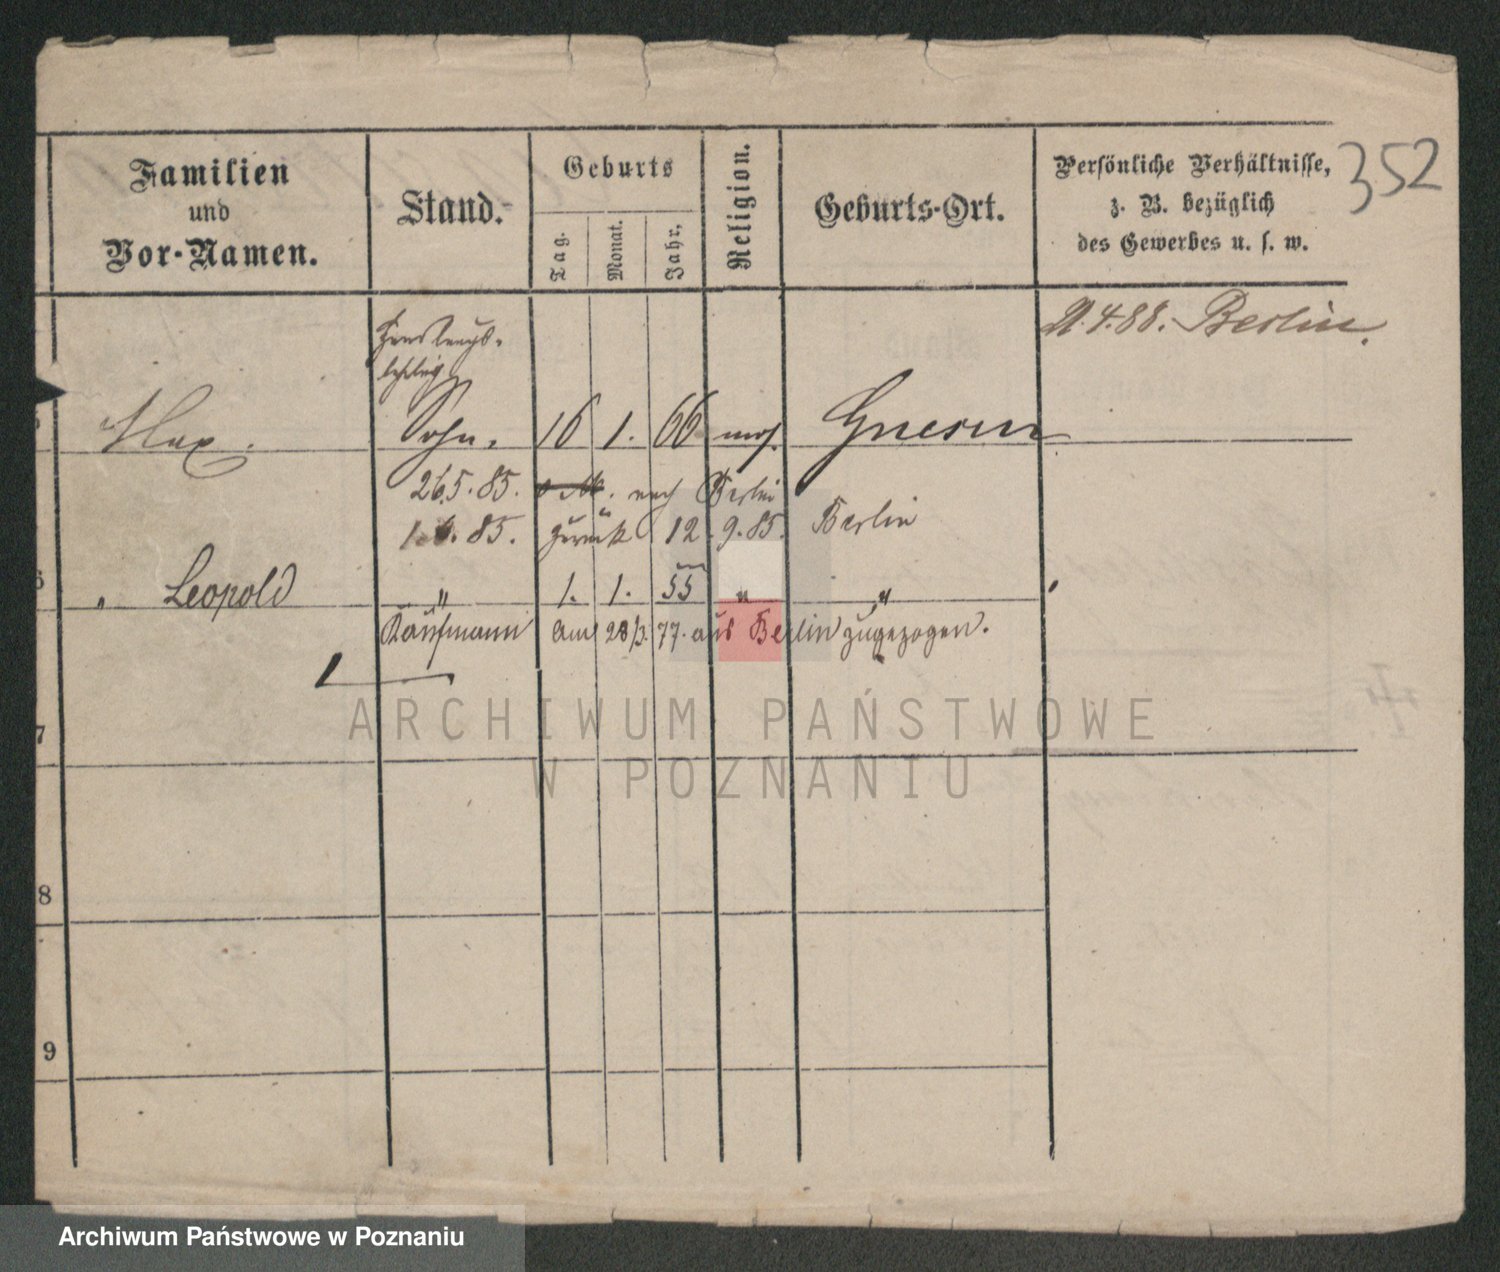 352
Familien
und
Vor-Namen.
Stand.
Geburts
Tag.
Monat.
Jahr.
Religion.
Geburts-Ort.
Persönliche Verhältnisse,
z. B. bezüglich
des Gewerbes u. s. w.
4.88. Berlin.
Max. Sohn. 16 1. 66 mos. Gnesen
26.5.85. nach Berlin
85. zurück 12.9.85. Berlin
" Leopold " 1. 1. 55 " "
Kaufmann am 28/3. 77. aus Berlin zugezogen.
7
8
9
ARCHIWUM PAŃSTWOWE
W POZNANIU
Archiwum Państwowe w Poznaniu